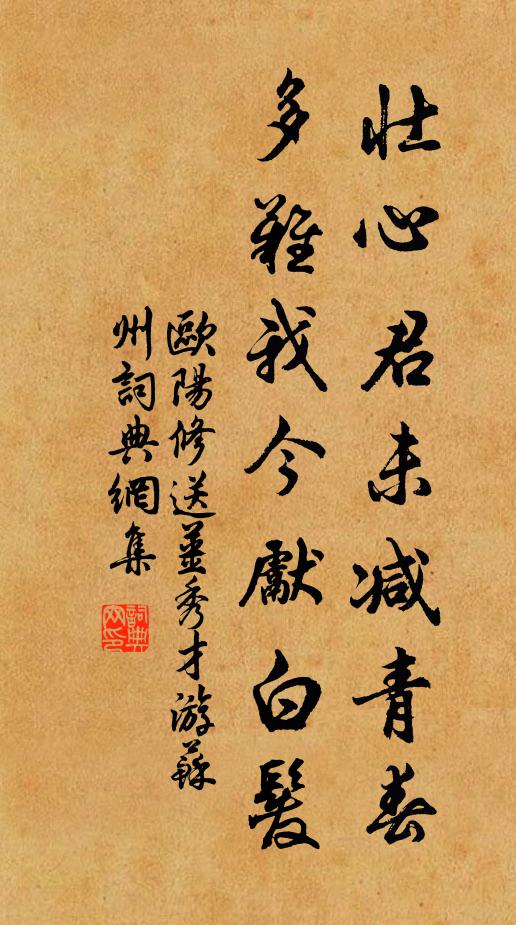 壯心君未减青春
多難我今獻白髮
歐陽修送薑秀才游蘇
州詞典網集
詞典網印